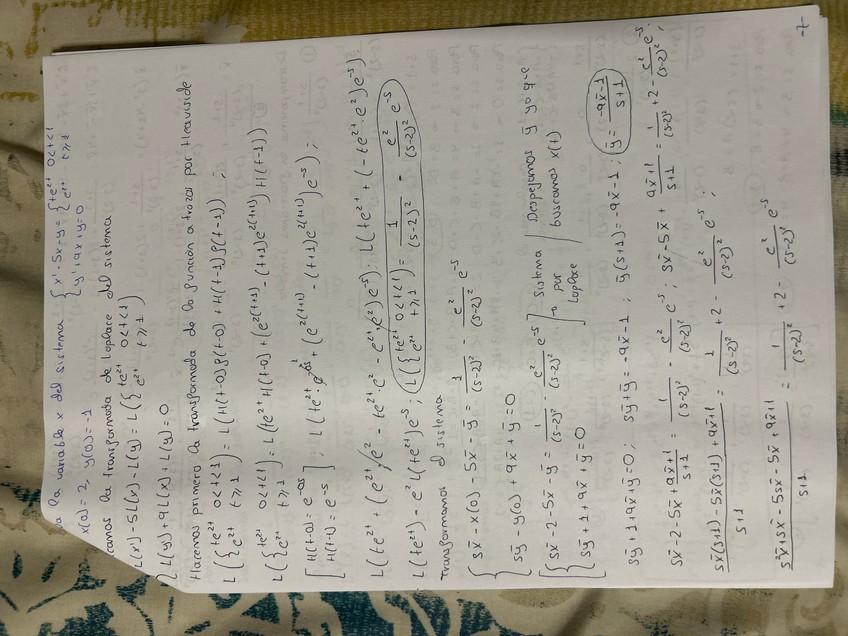 la variable x del sistema { x'-5x-y = { te^2t 0<t<1
e^2t t≥1
y'+9x+y=0
x(0)=2, y(0)=-1
la transformada de Laplace del sistema
L(x')-5L(x)-L(y) = L({ te^2t 0<t<1
e^2t t≥1 )
L(y')+9L(x)+L(y)=0
Hacemos primero la transformada de la función a trozos por Heaviside
L({ te^2t 0<t<1
e^2t t≥1 ) = L(H(t-0)f(t-0) + H(t-1)f(t-1)) ;
L({ te^2t 0<t<1
e^2t t≥1 ) = L(te^2t H(t-0) + (e^2(t+1) - (t+1)e^2(t+1)) H(t-1))
[ H(t-0) = e^-0s
H(t-1) = e^-s ] ; L(te^2t · e^-0s + (e^2(t+1) - (t+1)e^2(t+1)) e^-s) ;
L(te^2t + (e^2t e^2 - te^2t·e^2 - e^2t·e^2) e^-s) ; L(te^2t + (-te^2t·e^2) e^-s)
L(te^2t) - e^2 L(te^2t) e^-s ; L({ te^2t 0<t<1
e^2t t≥1 ) = 1/(s-2)^2 - e^2/(s-2)^2 e^-s
Transformamos el sistema
{ sx̄ - x(0) - 5x̄ - ȳ = 1/(s-2)^2 - e^2/(s-2)^2 e^-s
sȳ - y(0) + 9x̄ + ȳ = 0
{ sx̄ - 2 - 5x̄ - ȳ = 1/(s-2)^2 - e^2/(s-2)^2 e^-s ] → Sistema por Laplace / Despejamos ȳ ya que buscamos x(t)
sȳ + 1 + 9x̄ + ȳ = 0
sȳ + 1 + 9x̄ + ȳ = 0 ; sȳ + ȳ = -9x̄ - 1 ; ȳ(s+1) = -9x̄ - 1 ; ȳ = (-9x̄-1)/(s+1)
sx̄ - 2 - 5x̄ + (9x̄+1)/(s+1) = 1/(s-2)^2 - e^2/(s-2)^2 e^-s ; sx̄ - 5x̄ + (9x̄+1)/(s+1) = 1/(s-2)^2 + 2 - e^2/(s-2)^2 e^-s ;
(sx̄(s+1) - 5x̄(s+1) + 9x̄+1)/(s+1) = 1/(s-2)^2 + 2 - e^2/(s-2)^2 e^-s ;
(s^2x̄ + sx̄ - 5sx̄ - 5x̄ + 9x̄+1)/(s+1) = 1/(s-2)^2 + 2 - e^2/(s-2)^2 e^-s
-7-